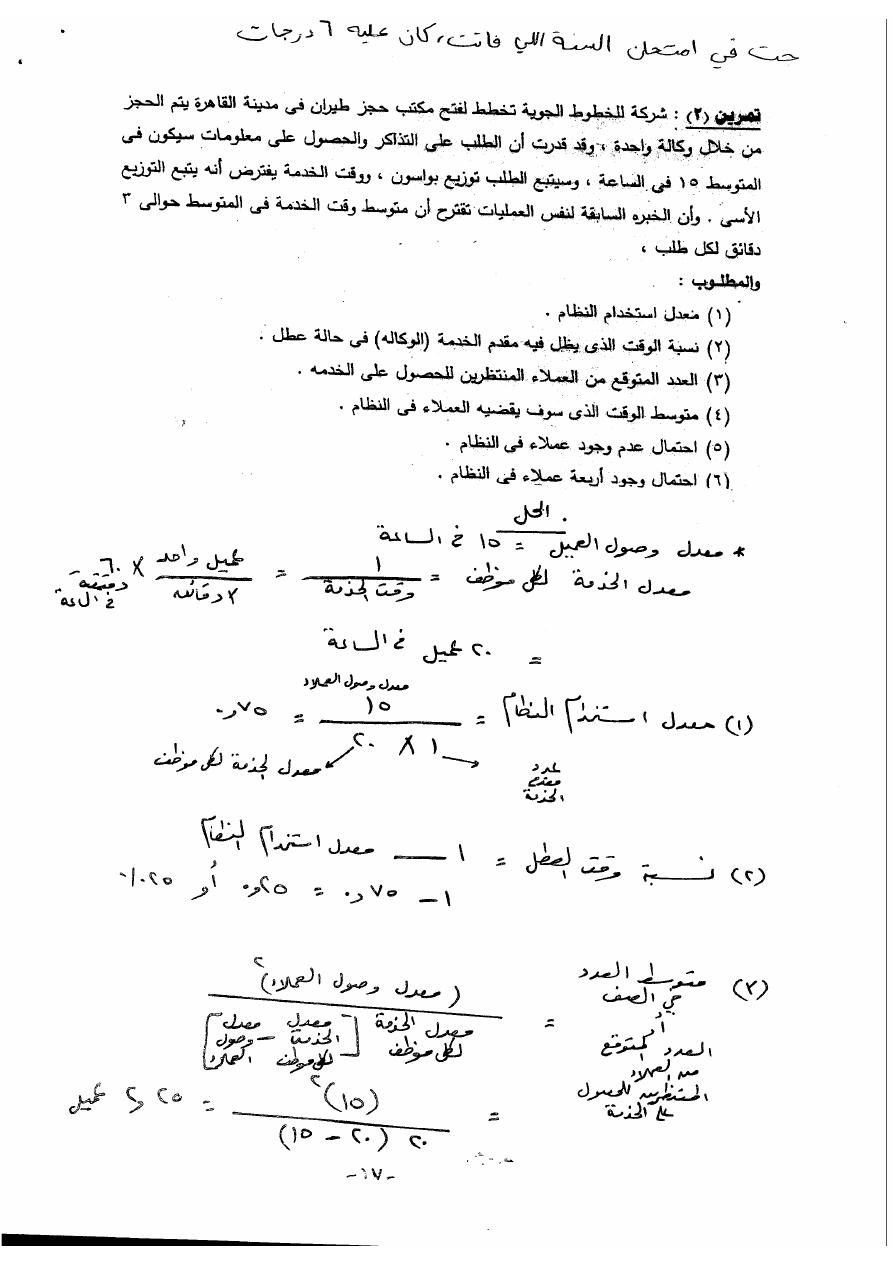 جت في امتحان السنة اللي فاتت، كان عليه ٦ درجات
تمرين (٢) : شركة للخطوط الجوية تخطط لفتح مكتب حجز طيران فى مدينة القاهرة يتم الحجز
من خلال وكالة واحدة ، وقد قدرت أن الطلب على التذاكر والحصول على معلومات سيكون فى
المتوسط ١٥ فى الساعة ، وسيتبع الطلب توزيع بواسون ، ووقت الخدمة يفترض أنه يتبع التوزيع
الأسى . وأن الخبره السابقة لنفس العمليات تقترح أن متوسط وقت الخدمة فى المتوسط حوالى ٣
دقائق لكل طلب ،
والمطلوب :
(١) معدل استخدام النظام .
(٢) نسبة الوقت الذى يظل فيه مقدم الخدمة (الوكاله) فى حالة عطل .
(٣) العدد المتوقع من العملاء المنتظرين للحصول على الخدمه .
(٤) متوسط الوقت الذى سوف يقضيه العملاء فى النظام .
(٥) احتمال عدم وجود عملاء فى النظام .
(٦) احتمال وجود أربعة عملاء فى النظام .
الحل
* معدل وصول العميل = ١٥ في الساعة
معدل الخدمة لكل موظف = ١ / وقت الخدمة = عميل واحد / ٣ دقائق × ٦٠ دقيقة في الساعة
= ٢٠ عميل في الساعة
معدل وصول العملاء
(١) معدل استخدام النظام = ١٥ / ١ × ٢٠ = ٧٥ر٠
معدل الخدمة لكل موظف
عدد مقدم الخدمة
(٢) نسبة وقت العطل = ١ — معدل استخدام النظام
١ – ٧٥ر٠ = ٢٥ر٠ أو ٢٥٪
(٣) متوسط العدد في الصف أو العدد المتوقع من العملاء المنتظرين للحصول على الخدمة = (معدل وصول العملاء)٢ / معدل الخدمة لكل موظف [معدل الخدمة لكل موظف – معدل وصول العملاء]
= (١٥)٢ / ٢٠ (٢٠ – ١٥) = ٢٥ر٢ عميل
-١٧-